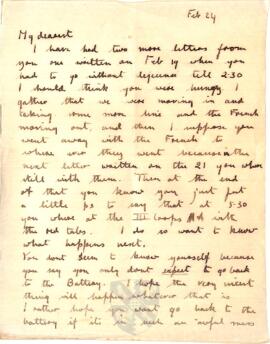 Feb 24
My dearest
I have had two more letters from
you one written on Feb 19 when you
had to go without lejeuner till 2·30
I should think you were hungry I
gather that we were moving in and
taking some more line and the French
moving out, and then I suppose you
went away with the French to
where ever they went because the
next letter written on the 21 you where
still with them. Then at the end
of that you know you just put
a little ps to say that at 5·30
you where at the III Corps
the old tabs. I do so want to know
what happens next.
You dont seem to know yourself because
you say you only dont expect to go back
to the Battery. I hope the very nicest
thing will happen whatever that is
I rather hope you wont go back to the
battery if its in such an awful mess